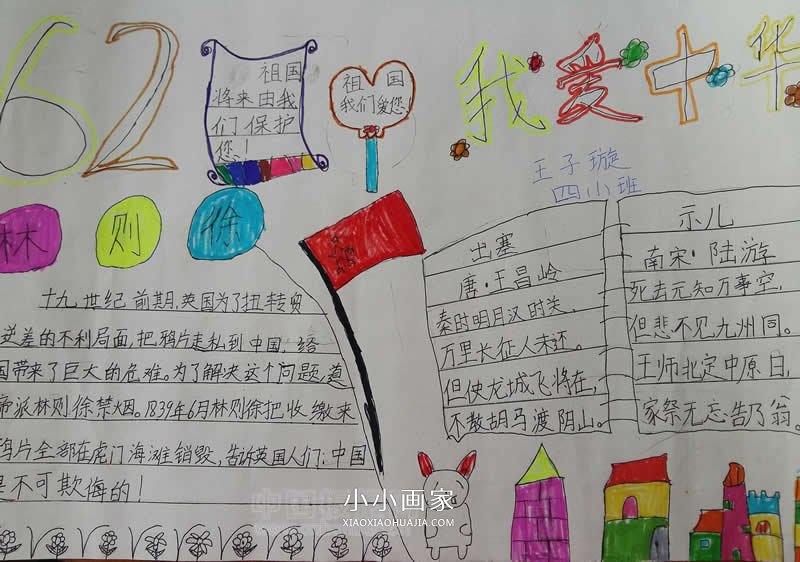 62
祖国
将来由我
们保护
您！
祖国
我们爱您！
我爱中华
王子璇
四小班
林则徐
十九世纪前期,英国为了扭转贸
逆差的不利局面,把鸦片走私到中国,给
国带来了巨大的危难。为了解决这个问题,道
帝派林则徐禁烟。1839年6月林则徐把收缴来
鸦片全部在虎门海滩销毁,告诉英国人们:中国
是不可欺侮的！
出塞
唐·王昌岭
秦时明月汉时关,
万里长征人未还。
但使龙城飞将在,
不教胡马渡阴山。
示儿
南宋·陆游
死去元知万事空,
但悲不见九州同。
王师北定中原日,
家祭无忘告乃翁。
小小画家
XIAOXIAOHUAJIA.COM